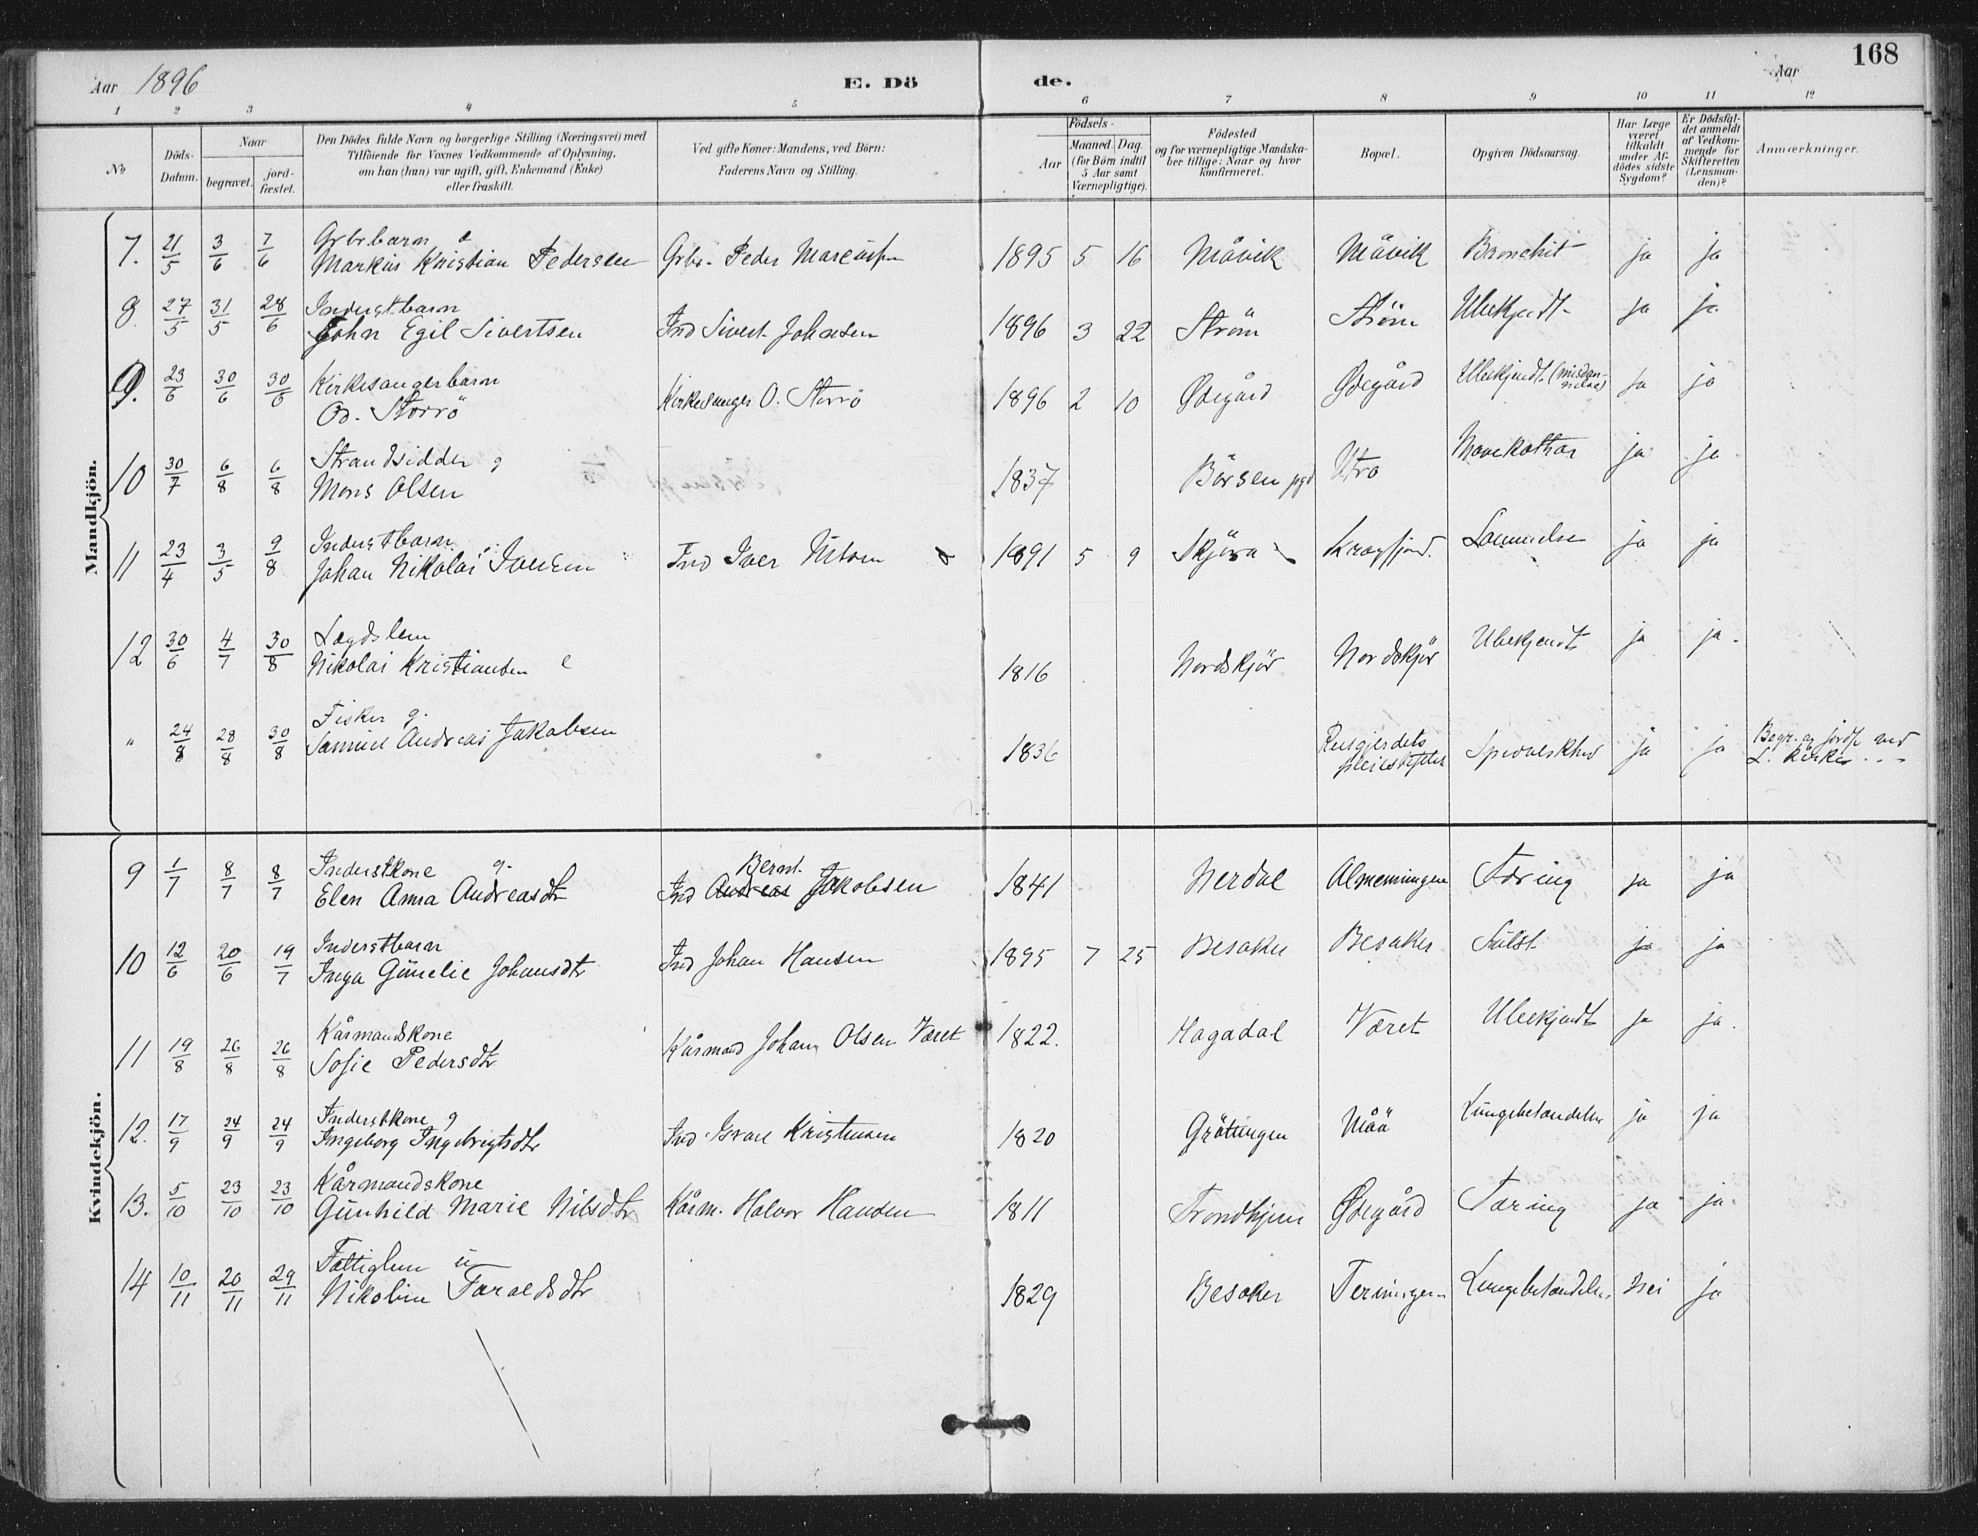 168
Aar 1896 E. Dö de. Aar
1 2 3 4 5 6 7 8 9 10 11 12
No
Döds-Datum.
Naar
begravet.
jord-fæstet.
Den Dödes fulde Navn og borgerlige Stilling (Næringsvei) med
Tilföiende for Voxnes Vedkommende af Oplysning,
om han (hun) var ugift, gift, Enkemand (Enke)
eller fraskilt.
Ved gifte Koner: Mandens, ved Börn:
Faderens Navn og Stilling.
Födsels-
Aar
Maaned. Dag.
(for Börn indtil
5 Aar samt
Værnepligtige).
Födested
og for værnepligtige Mandska-
ber tillige: Naar og hvor
konfirmeret.
Bopæl.
Opgiven Dödsaarsag.
Har Læge
været
tilkaldt
under Af-
dödes sidste
Sygdom?
Er Dödsfal-
det anmeldt
af Vedkom-
mende for
Skifteretten
(Lensman-
den)?
Anmærkninger.
Mandkjön.
7. 21/5 3/6 7/6 Grbr.barn
Markus Kristian Pedersen Grbr. Peder 1895 5 16 Måvik Måvik Bronchit ja ja
8. 27/5 31/5 28/6 Inderstbarn
John Egil Sivertsen Ind Sivert Johansen 1896 3 22 Ström Ström Ubekjendt ja ja
9. 23/6 30/6 30/6 Kirkesangerbarn
Od. Storrö Kirkesanger O. Storrö 1896 2 10 Ødegård Ødegård Ubekjendt ja ja
10 30/7 6/8 6/8 Strandsidder g
Mons Olsen 1837 Börsen pgd Utro Mavekathar ja ja
11 23/4 3/5 9/8 Inderstbarn
Johan Nikolai Iversen Ind Iver 1891 5 9 Skjöra ja ja
12 30/6 4/7 30/8 Lægdslem
Nikolai Kristiansen e 1816 Nordskjör Nordskjör Ubekjendt ja ja.
" 24/8 28/8 30/8 Fisker g.
Samuel Andreas Jakobsen 1836 Reitgjerdets
pleiestiftelse Spedalskhed ja ja Begr. og jordf. ved
L. Kirke
Kvindekjön.
9 1/7 8/7 8/7 Inderstkone g.
Elen Anna Andreasdtr Ind Andreas Bernt. Jakobsen 1841 Nerdal Almenningen Tæring ja ja
10 12/6 20/6 19/7 Inderstbarn
Inga Gunelie Johansdtr Ind Johan Hansen 1895 7 25 Besaker Besaker ja ja
11 19/8 26/8 26/8 Kårmandskone
Sofie Pedersdtr Kårmand Johan Olsen Været 1822. Hagadal Været Ubekjendt ja ja.
12. 17/9 24/9 24/9 Inderstkone g
Ingeborg Ingebrigtsdtr Ind. Israel Kristensen 1820 Grötningen Måä Lungebetændelse ja ja
13. 5/10 23/10 23/10 Kårmandskone
Gunhild Marie Nilsdtr Kårm. Halvor Hansen 1811 Trondhjem Ødegård Tæring ja ja.
14 10/11 20/11 29/11 Fattiglem u
Nikoline Faraldsdtr 1829 Besaker Terningen Lungebetændelse, nei ja